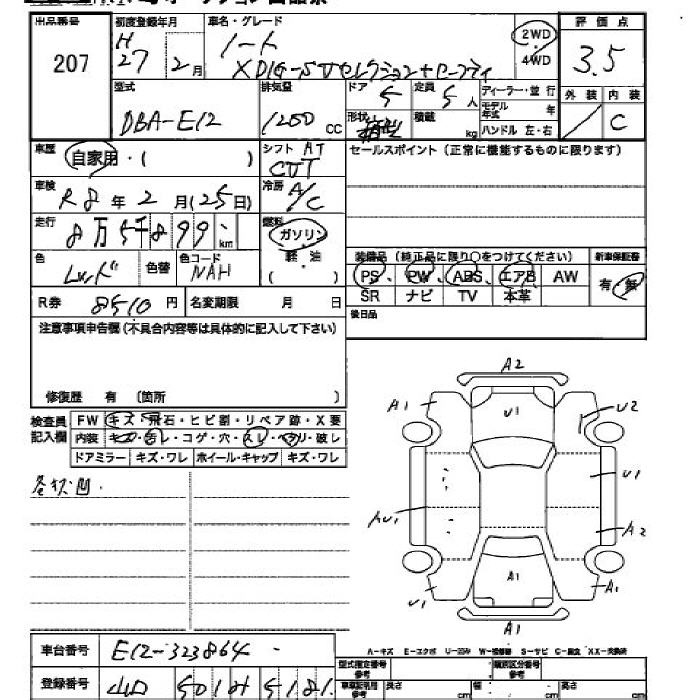 出品番号 初度登録年月 車名・グレード 評価点
207 H27 2月 ノート 2WD 3.5
X DIG-S Vセレクション+セーフティ 4WD
型式 排気量 ドア 5 定員 5人 ディーラー・並行 外装 内装
DBA-E12 1200 CC 形状 積載 kg モデル年式 年 C
ハンドル 左・右
車歴 自家用・( ) シフト AT セールスポイント(正常に機能するものに限ります)
CVT
車検 R8年2月(25日) 冷房 A/C
走行 8万5千899 km 燃料 ガソリン
色 レッド 色替 色コード NAH 軽油 装備品(純正品に限り○をつけてください) 新車保証書
( ) PS PW ABS エアB AW 有・無
R券 8510円 名変期限 月 日 SR ナビ TV 本革
注意事項申告欄(不具合内容等は具体的に記入して下さい) 後日品
修復歴 有 (箇所 )
検査員記入欄 FW キズ・飛石・ヒビ割・リペア跡・X要
内装 キズ・汚レ・コゲ・穴・スレ・ヘタリ・破レ
ドアミラー キズ・ワレ ホイール・キャップ キズ・ワレ
各 凹.
A2
A1 U1 U2
U1
AU1 A2
A1
U1 A1
A1
A-キズ E-エクボ U-凹み W-補修跡 S-サビ C-腐食 XX-交換済
車台番号 E12-323864
型式指定番号 参考 類別区分番号 参考
登録番号 山口 501 5181
車庫証明用 参考 長さ cm 幅 cm 高さ cm